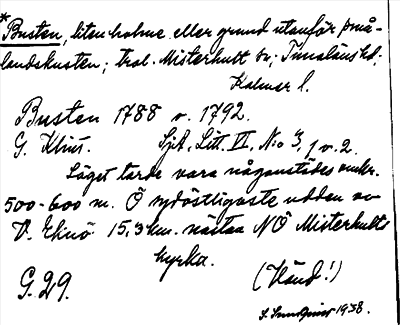 *Busten, liten holme eller grund utanför små-
landskusten; trol. Misterhult sn; Tunaläns hd;
Kalmar l.
Busten 1788 o. 1792.
G. Klint. Sjöt. Litt. VI, N:o 3, 1 o. 2.
Läget torde vara någonstädes omkr.
500-600 m. Ö sydöstligaste udden av
V. Eknö 15,3 km. nästan NÖ Misterhults
kyrka.
G. 29. (Vänd!)
S. Sundqvist 1938.